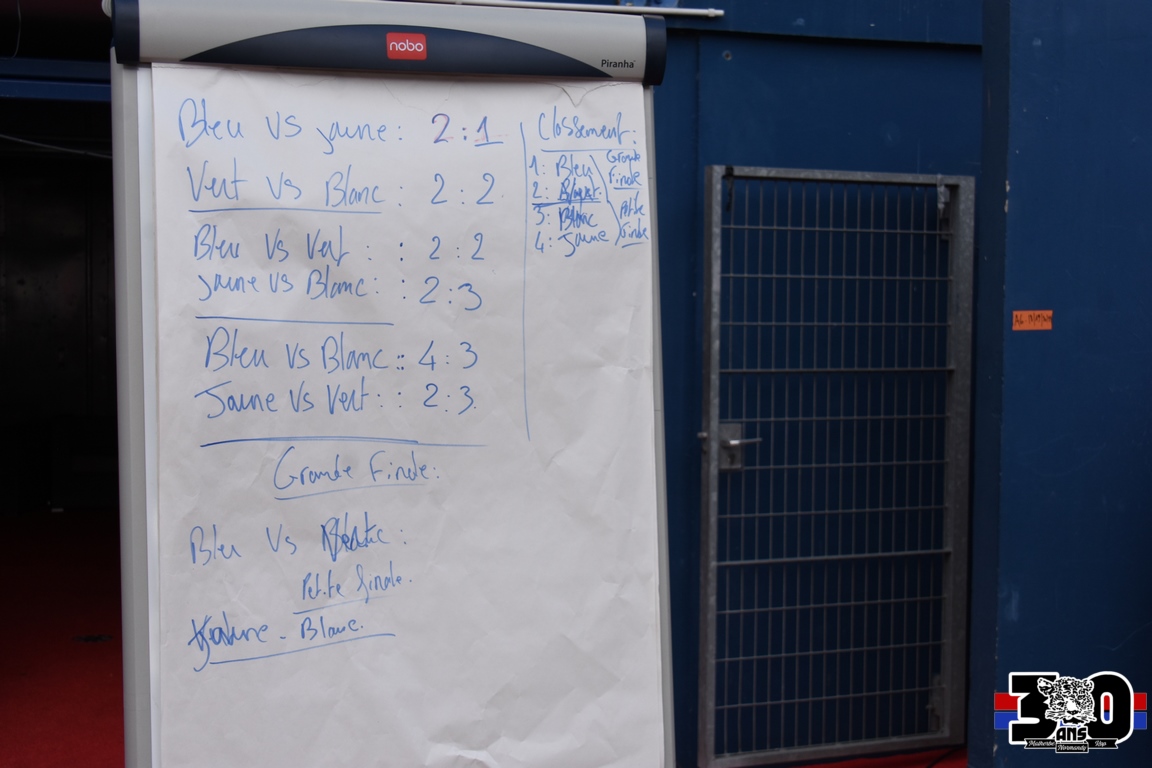 nobo
Piranha
Bleu VS jaune : 2 : 1
Vert VS Blanc : 2 : 2
Bleu VS Vert : : 2 : 2
jaune VS Blanc : : 2 : 3
Bleu VS Blanc :: 4 : 3
Jaune VS Vert : : 2 : 3
Grande Finale :
Bleu VS
Petite finale.
Jaune - Blanc.
Classement :
1 : Bleu
2 :
3 : Blanc
4 : Jaune
Grande
Finale
Petite
finale
30
ANS
Malherbe Normandy Kop